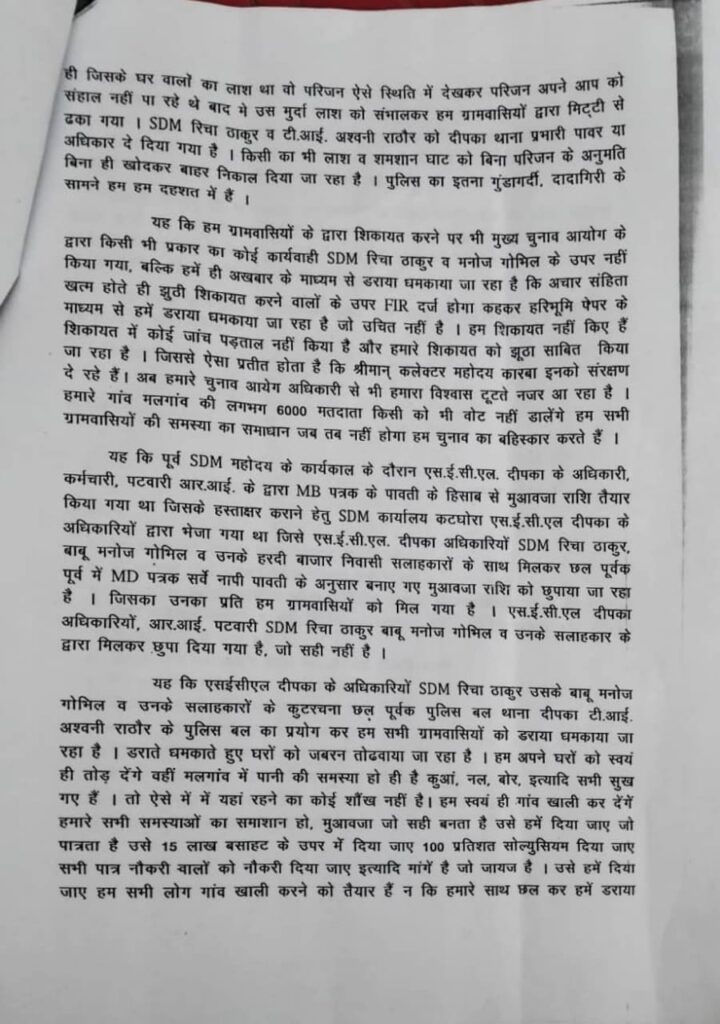 ही जिसके घर वालों का लाश था वो परिजन ऐसे स्थिति में देखकर परिजन अपने आप को
संहाल नहीं पा रहे थे बाद मे उस मुर्दा लाश को संभालकर हम ग्रामवासियों द्वारा मिट्टी से
ढका गया । SDM रिचा ठाकुर व टी.आई. अश्वनी राठौर को दीपका थाना प्रभारी पावर या
अधिकार दे दिया गया है । किसी का भी लाश व शमशान घाट को बिना परिजन के अनुमति
बिना ही खोदकर बाहर निकाल दिया जा रहा है । पुलिस का इतना गुंडागर्दी, दादागिरी के
सामने हम हम दहशत में हैं ।
यह कि हम ग्रामवासियों के द्वारा शिकायत करने पर भी मुख्य चुनाव आयोग के
द्वारा किसी भी प्रकार का कोई कार्यवाही SDM रिचा ठाकुर व मनोज गोभिल के उपर नहीं
किया गया, बल्कि हमें ही अखबार के माध्यम से डराया धमकाया जा रहा है कि अचार संहिता
खत्म होते ही झुठी शिकायत करने वालों के उपर FIR दर्ज होगा कहकर हरिभूमि पेपर के
माध्यम से हमें डराया धमकाया जा रहा है जो उचित नहीं है । हम शिकायत नहीं किए हैं
शिकायत में कोई जांच पड़ताल नहीं किया है और हमारे शिकायत को झूठा साबित किया
जा रहा है । जिससे ऐसा प्रतीत होता है कि श्रीमान् कलेक्टर महोदय कारबा इनको संरक्षण
दे रहे हैं। अब हमारे चुनाव आयेग अधिकारी से भी हमारा विश्वास टूटते नजर आ रहा है ।
हमारे गांव मलगांव की लगभग 6000 मतदाता किसी को भी वोट नहीं डालेंगे हम सभी
ग्रामवासियों की समस्या का समाधान जब तब नहीं होगा हम चुनाव का बहिस्कार करते हैं ।
यह कि पूर्व SDM महोदय के कार्यकाल के दौरान एस.ई.सी.एल. दीपका के अधिकारी,
कर्मचारी, पटवारी आर.आई. के द्वारा MB पत्रक के पावती के हिसाब से मुआवजा राशि तैयार
किया गया था जिसके हस्ताक्षर कराने हेतु SDM कार्यालय कटघोरा एस.ई.सी.एल दीपका के
अधिकारियों द्वारा भेजा गया था जिसे एस.ई.सी.एल. दीपका अधिकारियों SDM रिचा ठाकुर,
बाबू मनोज गोभिल व उनके हरदी बाजार निवासी सलाहकारों के साथ मिलकर छल पूर्वक
पूर्व में MD पत्रक सर्वे नापी पावती के अनुसार बनाए गए मुआवजा राशि को छुपाया जा रहा
है । जिसका उनका प्रति हम ग्रामवासियों को मिल गया है । एस.ई.सी.एल दीपका
अधिकारियों, आर.आई. पटवारी SDM रिचा ठाकुर बाबू मनोज गोभिल व उनके सलाहकार के
द्वारा मिलकर छुपा दिया गया है, जो सही नहीं है ।
यह कि एसईसीएल दीपका के अधिकारियों SDM रिचा ठाकुर उसके बाबू मनोज
गोभिल व उनके सलाहकारों के कुटरचना छल पूर्वक पुलिस बल थाना दीपका टी.आई.
अश्वनी राठौर के पुलिस बल का प्रयोग कर हम सभी ग्रामवासियों को डराया धमकाया जा
रहा है । डराते धमकाते हुए घरों को जबरन तोढवाया जा रहा है । हम अपने घरों को स्वयं
ही तोड़ देंगे वहीं मलगांव में पानी की समस्या हो ही है कुआं, नल, बोर, इत्यादि सभी सुख
गए हैं । तो ऐसे में में यहां रहने का कोई शौंख नहीं है। हम स्वयं ही गांव खाली कर देंगें
हमारे सभी समस्याओं का समाशान हो, मुआवजा जो सही बनता है उसे हमें दिया जाए जो
पात्रता है उसे 15 लाख बसाहट के उपर में दिया जाए 100 प्रतिशत सोल्युसियम दिया जाए
सभी पात्र नौकरी वालों को नौकरी दिया जाए इत्यादि मांगें है जो जायज है । उसे हमें दिया
जाए हम सभी लोग गांव खाली करने को तैयार हैं न कि हमारे साथ छल कर हमें डराया